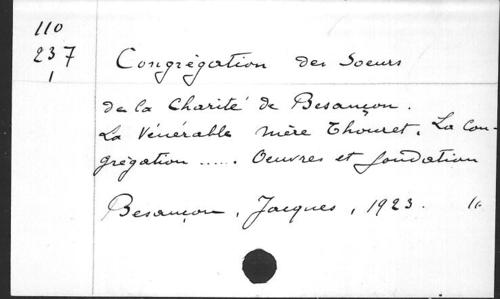 110
237
1
Congrégation des Soeurs
de la Charité de Besançon.
La Vénérable Mère Thouret. La Con-
grégation ..... Oeuvres et fondation
Besançon, Jacques, 1923.